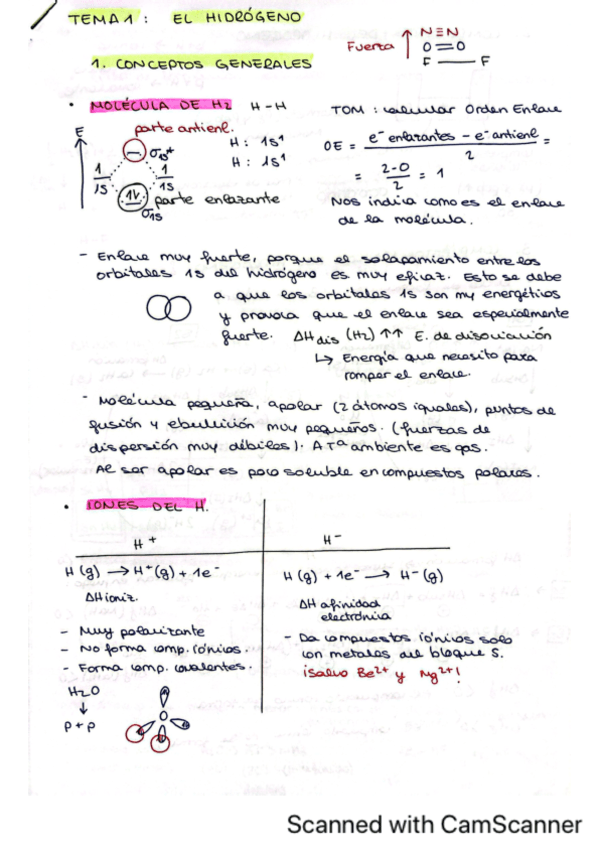 TEMA 1 : EL HIDRÓGENO
Fuerza ↑ N≡N
O=O
F — F
1. CONCEPTOS GENERALES
• MOLÉCULA DE H2 H-H
TOM : calcular Orden Enlace
E
parte antienl.
σ1s*
H : 1s1
H : 1s1
OE = e- enlazantes - e- antienl / 2 =
= 2-0 / 2 = 1
1 1
1s 1s
1↓ parte enlazante
σ1s
Nos indica como es el enlace
de la molécula.
- Enlace muy fuerte, porque el solapamiento entre los
orbitales 1s del hidrógeno es muy eficaz. Esto se debe
a que los orbitales 1s son my energétios
y provoca que el enlace sea especialmente
fuerte. ΔHdis (H2) ↑↑ E. de disociación
↳ Energía que necesito para
romper el enlace.
- Molécula pequeña, apolar (2 átomos iguales), puntos de
fusión y ebullición muy pequeños. (fuerzas de
dispersión muy débiles). A Tª ambiente es gas.
Al ser apolar es poco soluble en compuestos polares.
• IONES DEL H.
H+ H-
H (g) → H+(g) + 1e-
H (g) + 1e- → H-(g)
ΔH ioniz.
ΔH afinidad
electrónica
- Muy polarizante
- No forma comp. iónicos.
- Forma comp. covalentes.
- Da compuestos iónicos solo
con metales del bloque S.
¡salvo Be2+ y Mg2+!
H2O
↓
p + p
O
Scanned with CamScanner